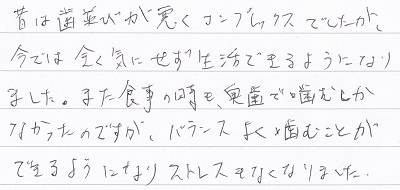 昔は歯並びが悪くコンプレックスでしたが、
今では全く気にせず生活できるようになり
ました。また食事の時も、奥歯で噛むしか
なかったのですが、バランスよく噛むことが
できるようになりストレスもなくなりました。